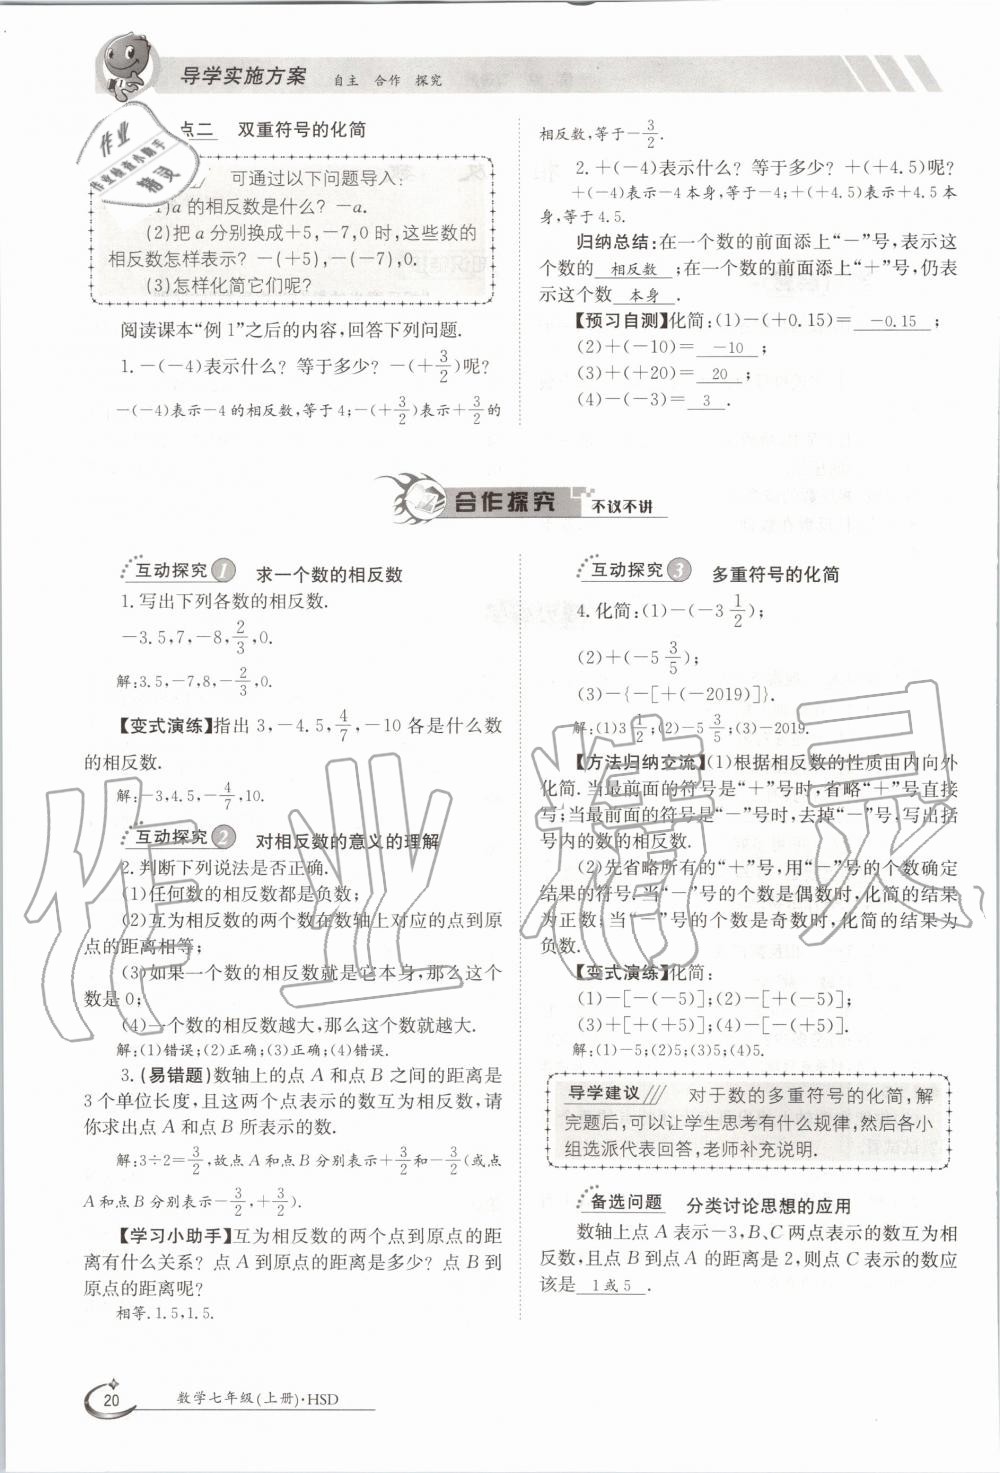 导学实施方案 自主 合作 探究
点二 双重符号的化简
可通过以下问题导入：
(1)a的相反数是什么？－a.
(2)把a分别换成＋5，－7，0时，这些数的
相反数怎样表示？－(＋5)，－(－7)，0.
(3)怎样化简它们呢？
阅读课本“例1”之后的内容，回答下列问题.
1.－(－4)表示什么？等于多少？－(＋3/2)呢？
－(－4)表示－4的相反数，等于4；－(＋3/2)表示＋3/2的
相反数，等于－3/2.
2.＋(－4)表示什么？等于多少？＋(＋4.5)呢？
＋(－4)表示－4本身，等于－4；＋(＋4.5)表示＋4.5本
身，等于4.5.
归纳总结：在一个数的前面添上“－”号，表示这
个数的 相反数 ；在一个数的前面添上“＋”号，仍表
示这个数 本身 .
【预习自测】化简：(1)－(＋0.15)＝ －0.15 ；
(2)＋(－10)＝ －10 ；
(3)＋(＋20)＝ 20 ；
(4)－(－3)＝ 3 .
合作探究 不议不讲
互动探究1 求一个数的相反数
1.写出下列各数的相反数.
－3.5，7，－8，2/3，0.
解：3.5，－7，8，－2/3，0.
【变式演练】指出3，－4.5，4/7，－10各是什么数
的相反数.
解：－3，4.5，－4/7，10.
互动探究2 对相反数的意义的理解
2.判断下列说法是否正确.
(1)任何数的相反数都是负数；
(2)互为相反数的两个数在数轴上对应的点到原
点的距离相等；
(3)如果一个数的相反数就是它本身，那么这个
数是0；
(4)一个数的相反数越大，那么这个数就越大.
解：(1)错误；(2)正确；(3)正确；(4)错误.
3.(易错题)数轴上的点A和点B之间的距离是
3个单位长度，且这两个点表示的数互为相反数，请
你求出点A和点B所表示的数.
解：3÷2＝3/2，故点A和点B分别表示＋3/2和－3/2(或点
A和点B分别表示－3/2，＋3/2).
【学习小助手】互为相反数的两个点到原点的距
离有什么关系？点A到原点的距离是多少？点B到
原点的距离呢？
相等.1.5，1.5.
互动探究3 多重符号的化简
4.化简：(1)－(－3 1/2)；
(2)＋(－5 3/5)；
(3)－{－[＋(－2019)]}.
解：(1)3 1/2；(2)－5 3/5；(3)－2019.
【方法归纳交流】(1)根据相反数的性质由内向外
化简.当最前面的符号是“＋”号时，省略“＋”号直接
写；当最前面的符号是“－”号时，去掉“－”号，写出括
号内的数的相反数.
(2)先省略所有的“＋”号，用“－”号的个数确定
结果的符号.当“－”号的个数是偶数时，化简的结果
为正数；当“－”号的个数是奇数时，化简的结果为
负数.
【变式演练】化简：
(1)－[－(－5)]；(2)－[＋(－5)]；
(3)＋[＋(＋5)]；(4)－[－(＋5)].
解：(1)－5；(2)5；(3)5；(4)5.
导学建议 对于数的多重符号的化简，解
完题后，可以让学生思考有什么规律，然后各小
组选派代表回答，老师补充说明.
备选问题 分类讨论思想的应用
数轴上点A表示－3，B、C两点表示的数互为相
反数，且点B到点A的距离是2，则点C表示的数应
该是 1或5 .
20 数学七年级(上册)·HSD
作业
作业检查小助手
精灵
作业精灵